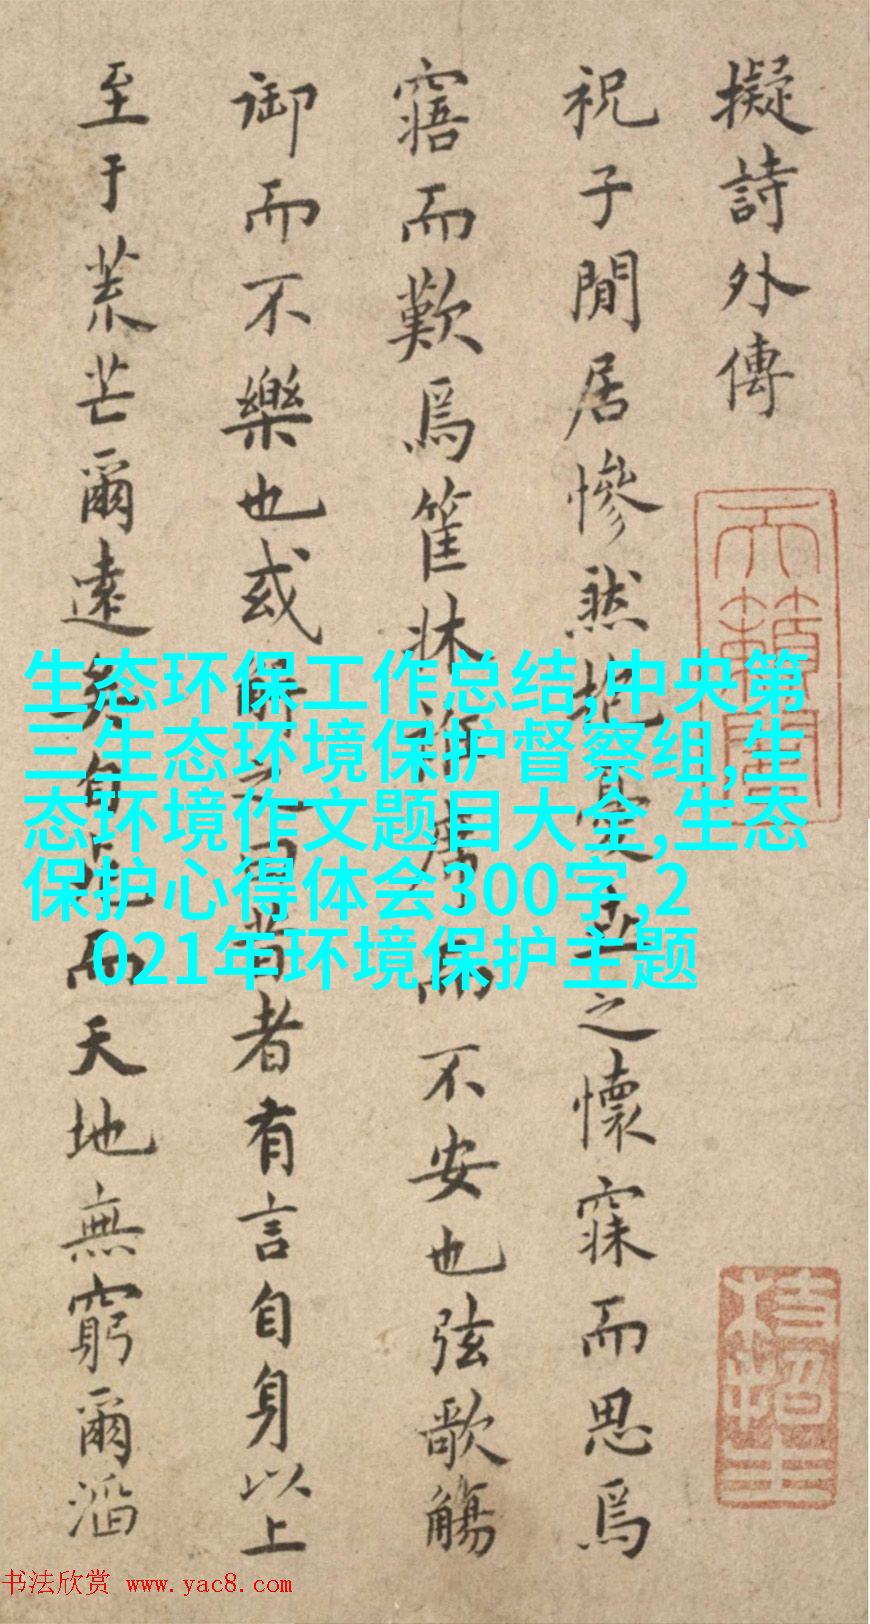 擬詩外傳
祝子閒居慘然抱憂世之懷寐而思焉
寤而歎焉筐牀衽席而不安也弦歌觴
御而不樂也或解之曰昔者有言自身以上
至于荒芒爾遠矣自而天地無窮爾滔
天籟閣
生态环保工作总结,中央第
三生态环境保护督察组,生
态环境作文题目大全,生态
保护心得体会300字,2
021年环境保护主题
书法欣赏 www.yac8.com